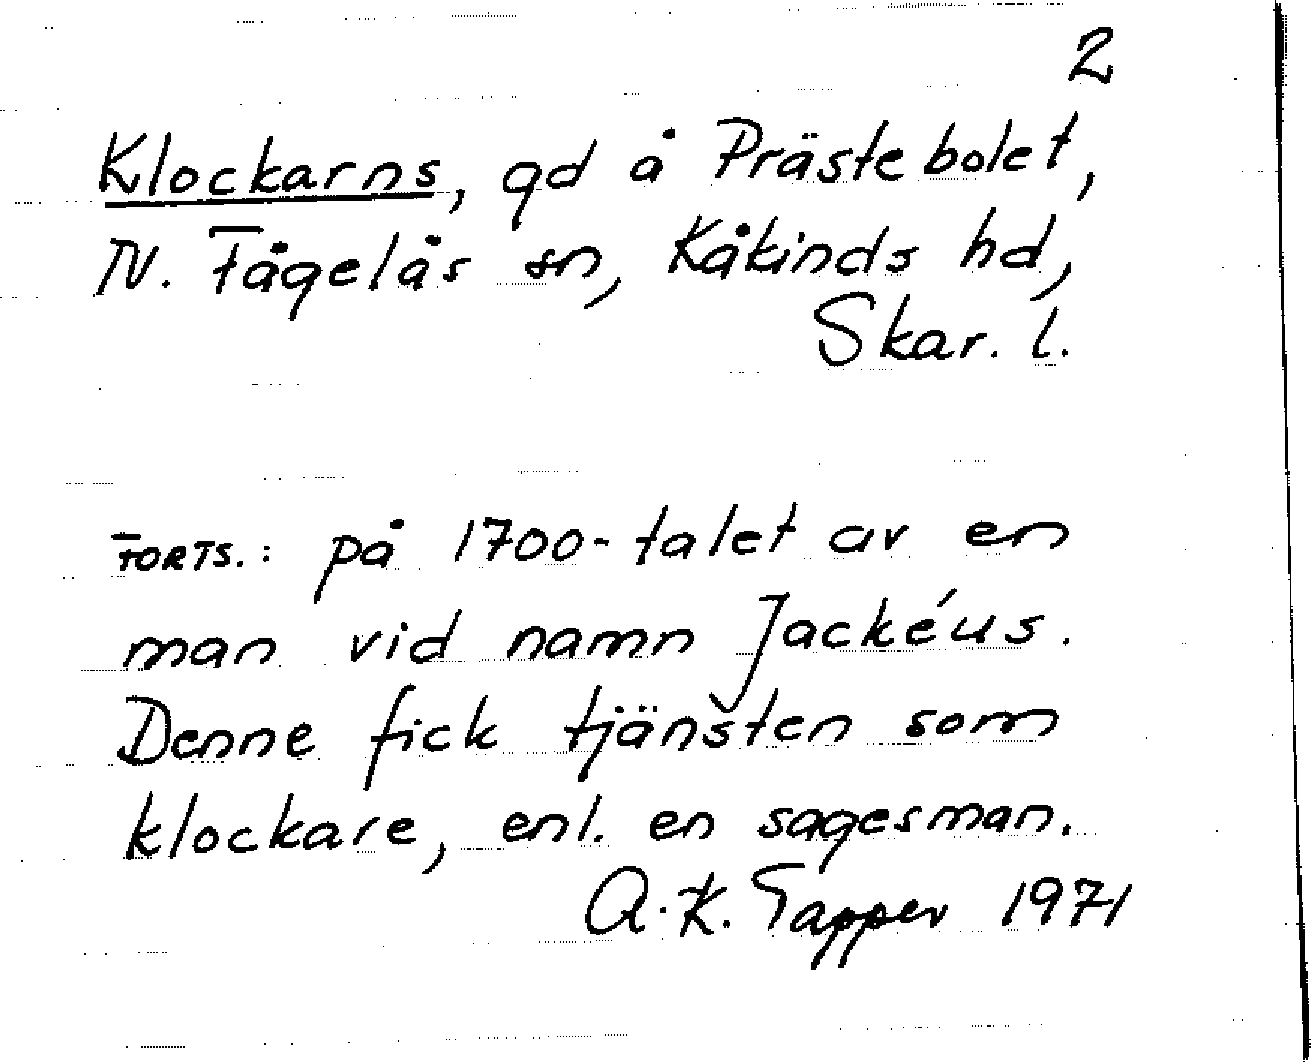 2
Klockarns, gd å Prästebolet,
N. Fågelås sn, Kåkinds hd,
Skar. l.
FORTS.: på 1700-talet av en
man vid namn Jackéus.
Denne fick tjänsten som
klockare, enl. en sagesman.
A.K. Tapper 1971